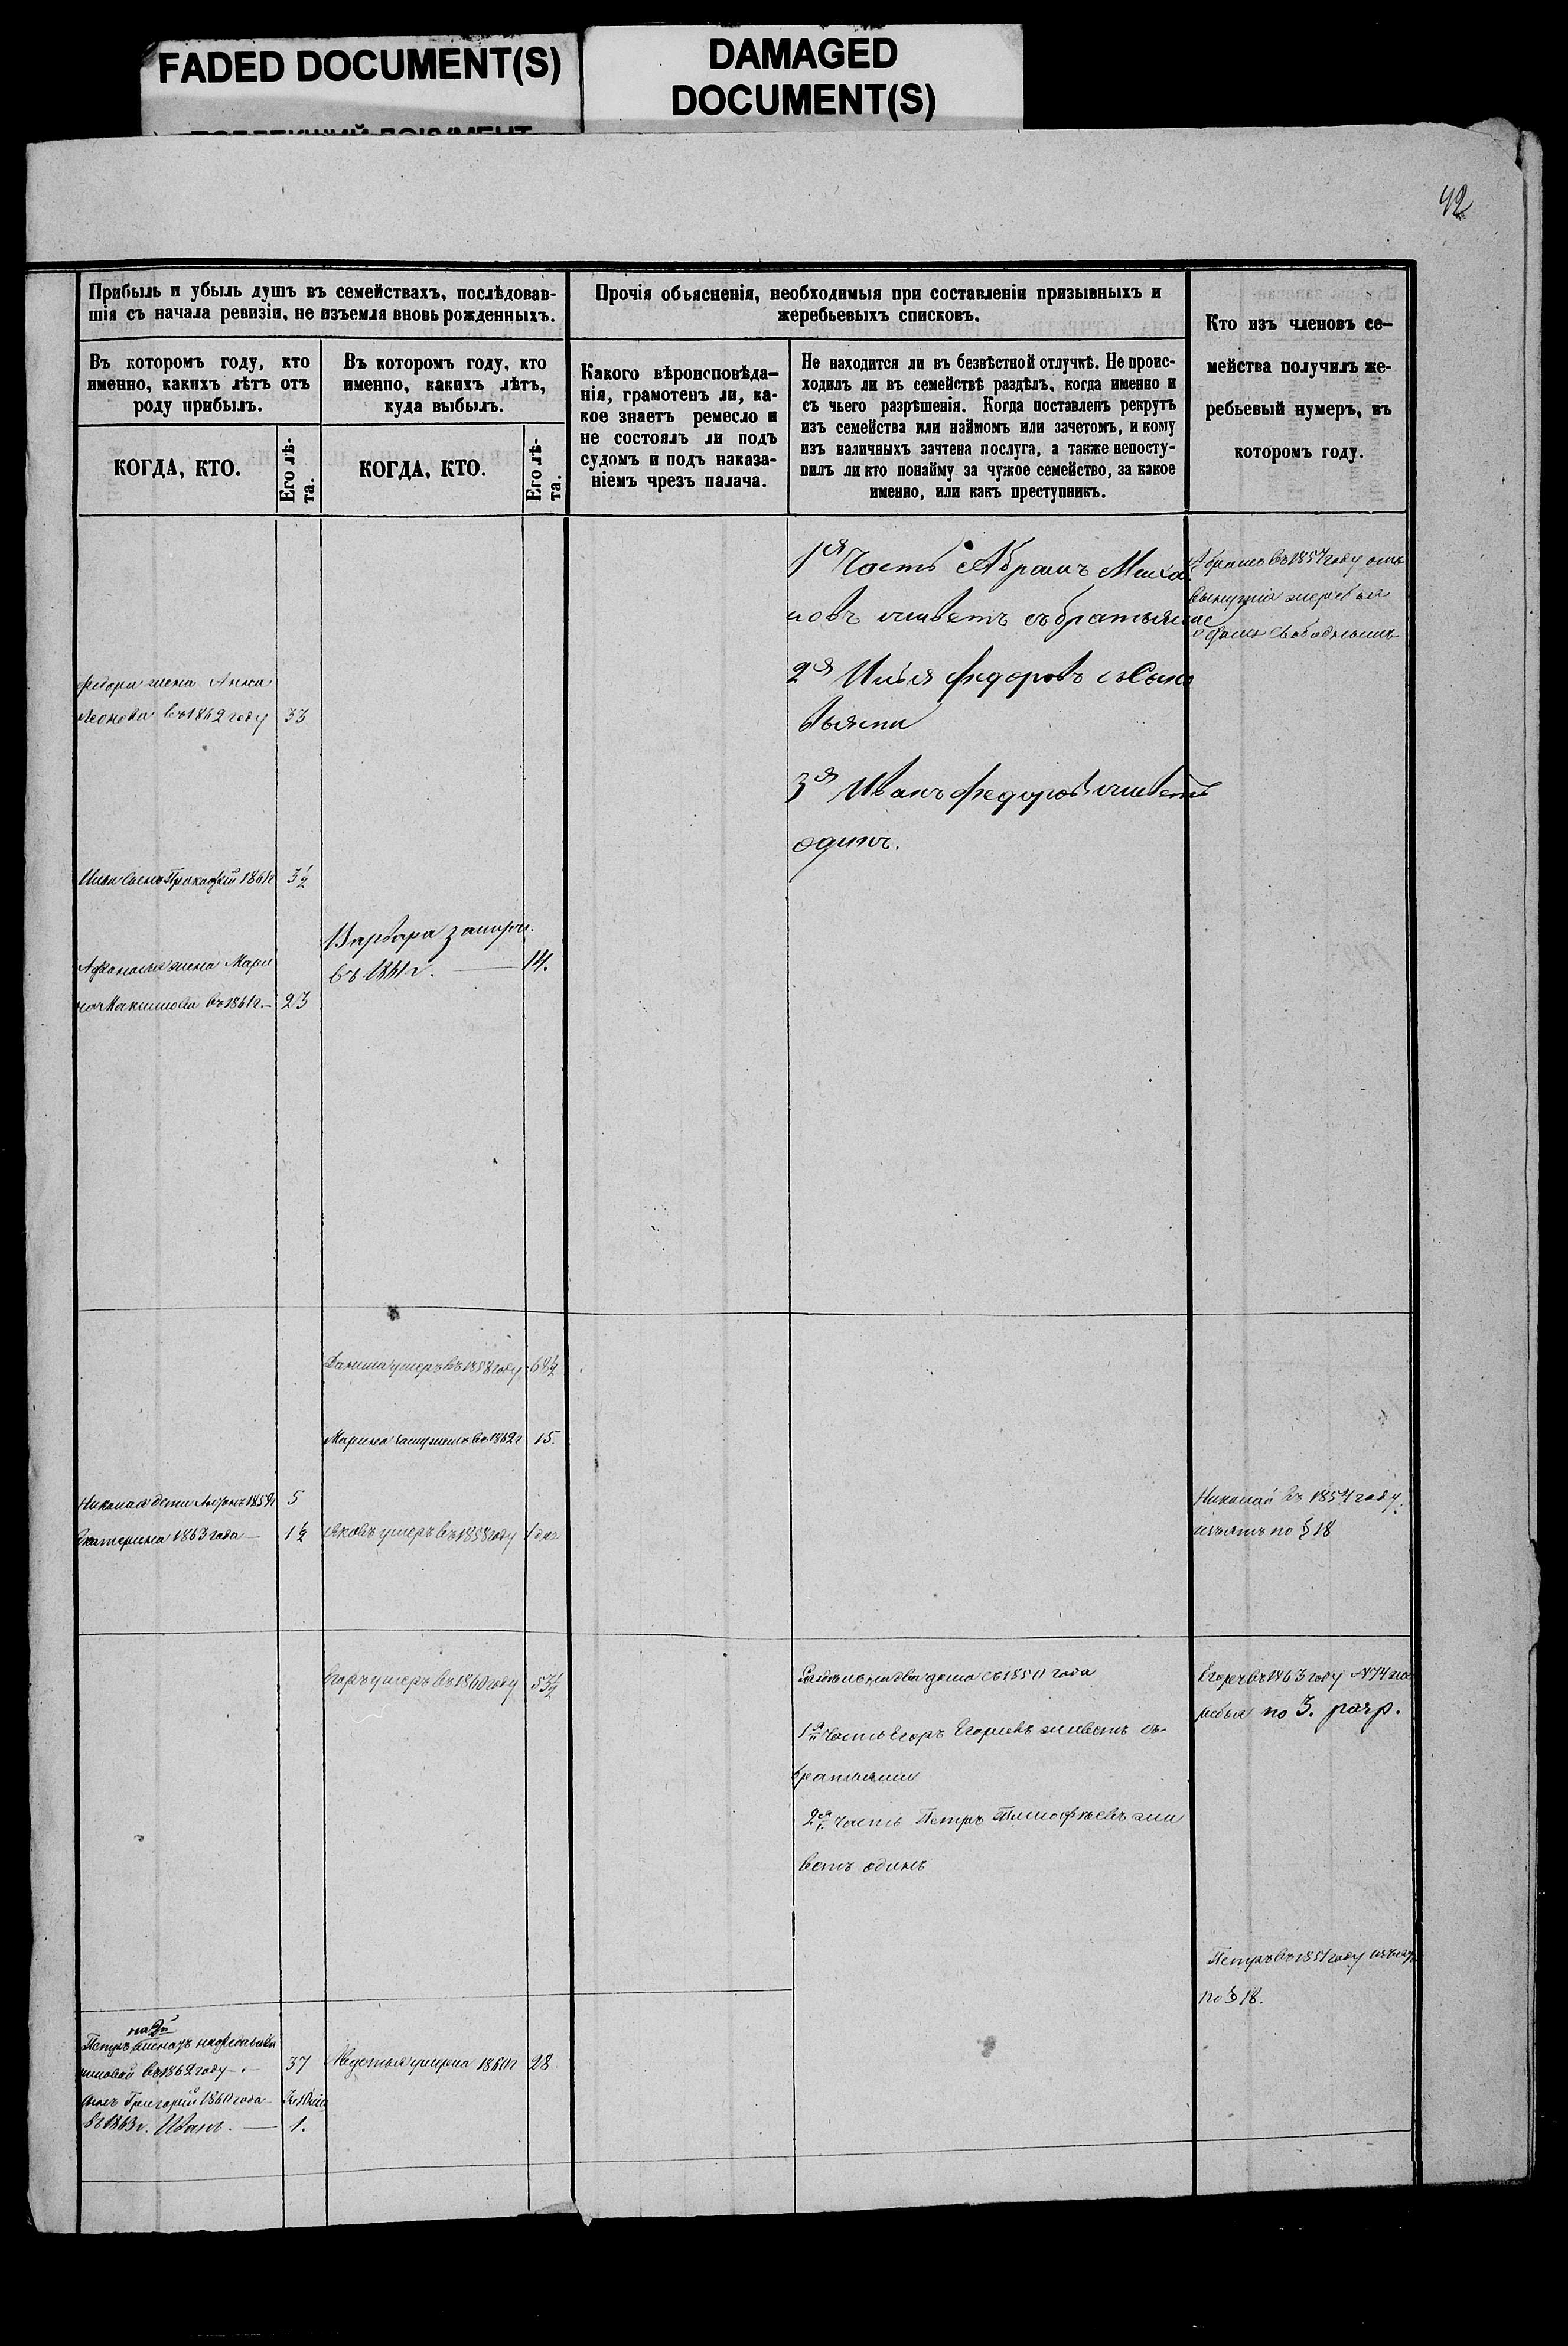 FADED DOCUMENT(S)
DAMAGED
DOCUMENT(S)
42
Прибыль и убыль душъ въ семействахъ, послѣдовав-
шія съ начала ревизіи, не изъемля вновь рожденныхъ.
Прочія объясненія, необходимыя при составленіи призывныхъ и
жеребьевыхъ списковъ.
Кто изъ членовъ се-
мейства получилъ же-
ребьевый нумеръ, въ
которомъ году.
Въ которомъ году, кто
именно, какихъ лѣтъ отъ
роду прибылъ.
Въ которомъ году, кто
именно, какихъ лѣтъ,
куда выбылъ.
Какого вѣроисповѣда-
нія, грамотенъ ли, ка-
кое знаетъ ремесло и
не состоялъ ли подъ
судомъ и подъ наказа-
ніемъ чрезъ палача.
Не находится ли въ безвѣстной отлучкѣ. Не проис-
ходилъ ли въ семействѣ раздѣлъ, когда именно и
съ чьего разрѣшенія. Когда поставленъ рекрутъ
изъ семейства или наймомъ или зачетомъ, и кому
изъ наличныхъ зачтена послуга, а также непосту-
пилъ ли кто понайму за чужое семейство, за какое
именно, или какъ преступникъ.
КОГДА, КТО.
Его лѣ-
та.
КОГДА, КТО.
Его лѣ-
та.
1я Часть Абрамъ Миха
новъ живетъ събратьями
2я Илья Федоровъ съ Сыно
вьями
3я Иванъ Федоровъ живетъ
одинъ.
Абрамъ въ 1854 году
жеребья
свободнымъ
Федора жена Анна
въ 1862 году 33
Ильи Сынъ Прокофій 1861г 3½
Афанасья жена Мари
на Максимова въ 1861г. 23
Варвара замуж.
въ 1861г. 14.
умеръ въ 1858 году
Марина замужемъ въ 1862г 15.
Николая дети 1859г 5
Екатерина 1863 года 1½
Яковъ умеръ въ 1858 году 1
Николай въ 1854 году
изъятъ по § 18
Егоръ умеръ въ 1860 году 53½
на два дома съ 1850 года
1я Часть Егоръ Егоровъ живетъ съ
братьями
2я часть Петръ Тимофѣевъ жи
ветъ одинъ
Егоръ въ 1863 году №74 же
ребья по 3. разр.
Петръ въ 1854 году изъятъ
по § 18.
на 2й
Петръ женатъ на
въ 1862 году 37
сынъ Григорій 1860 года
въ 1863г. Иванъ. 1.
умерла 1860г 28